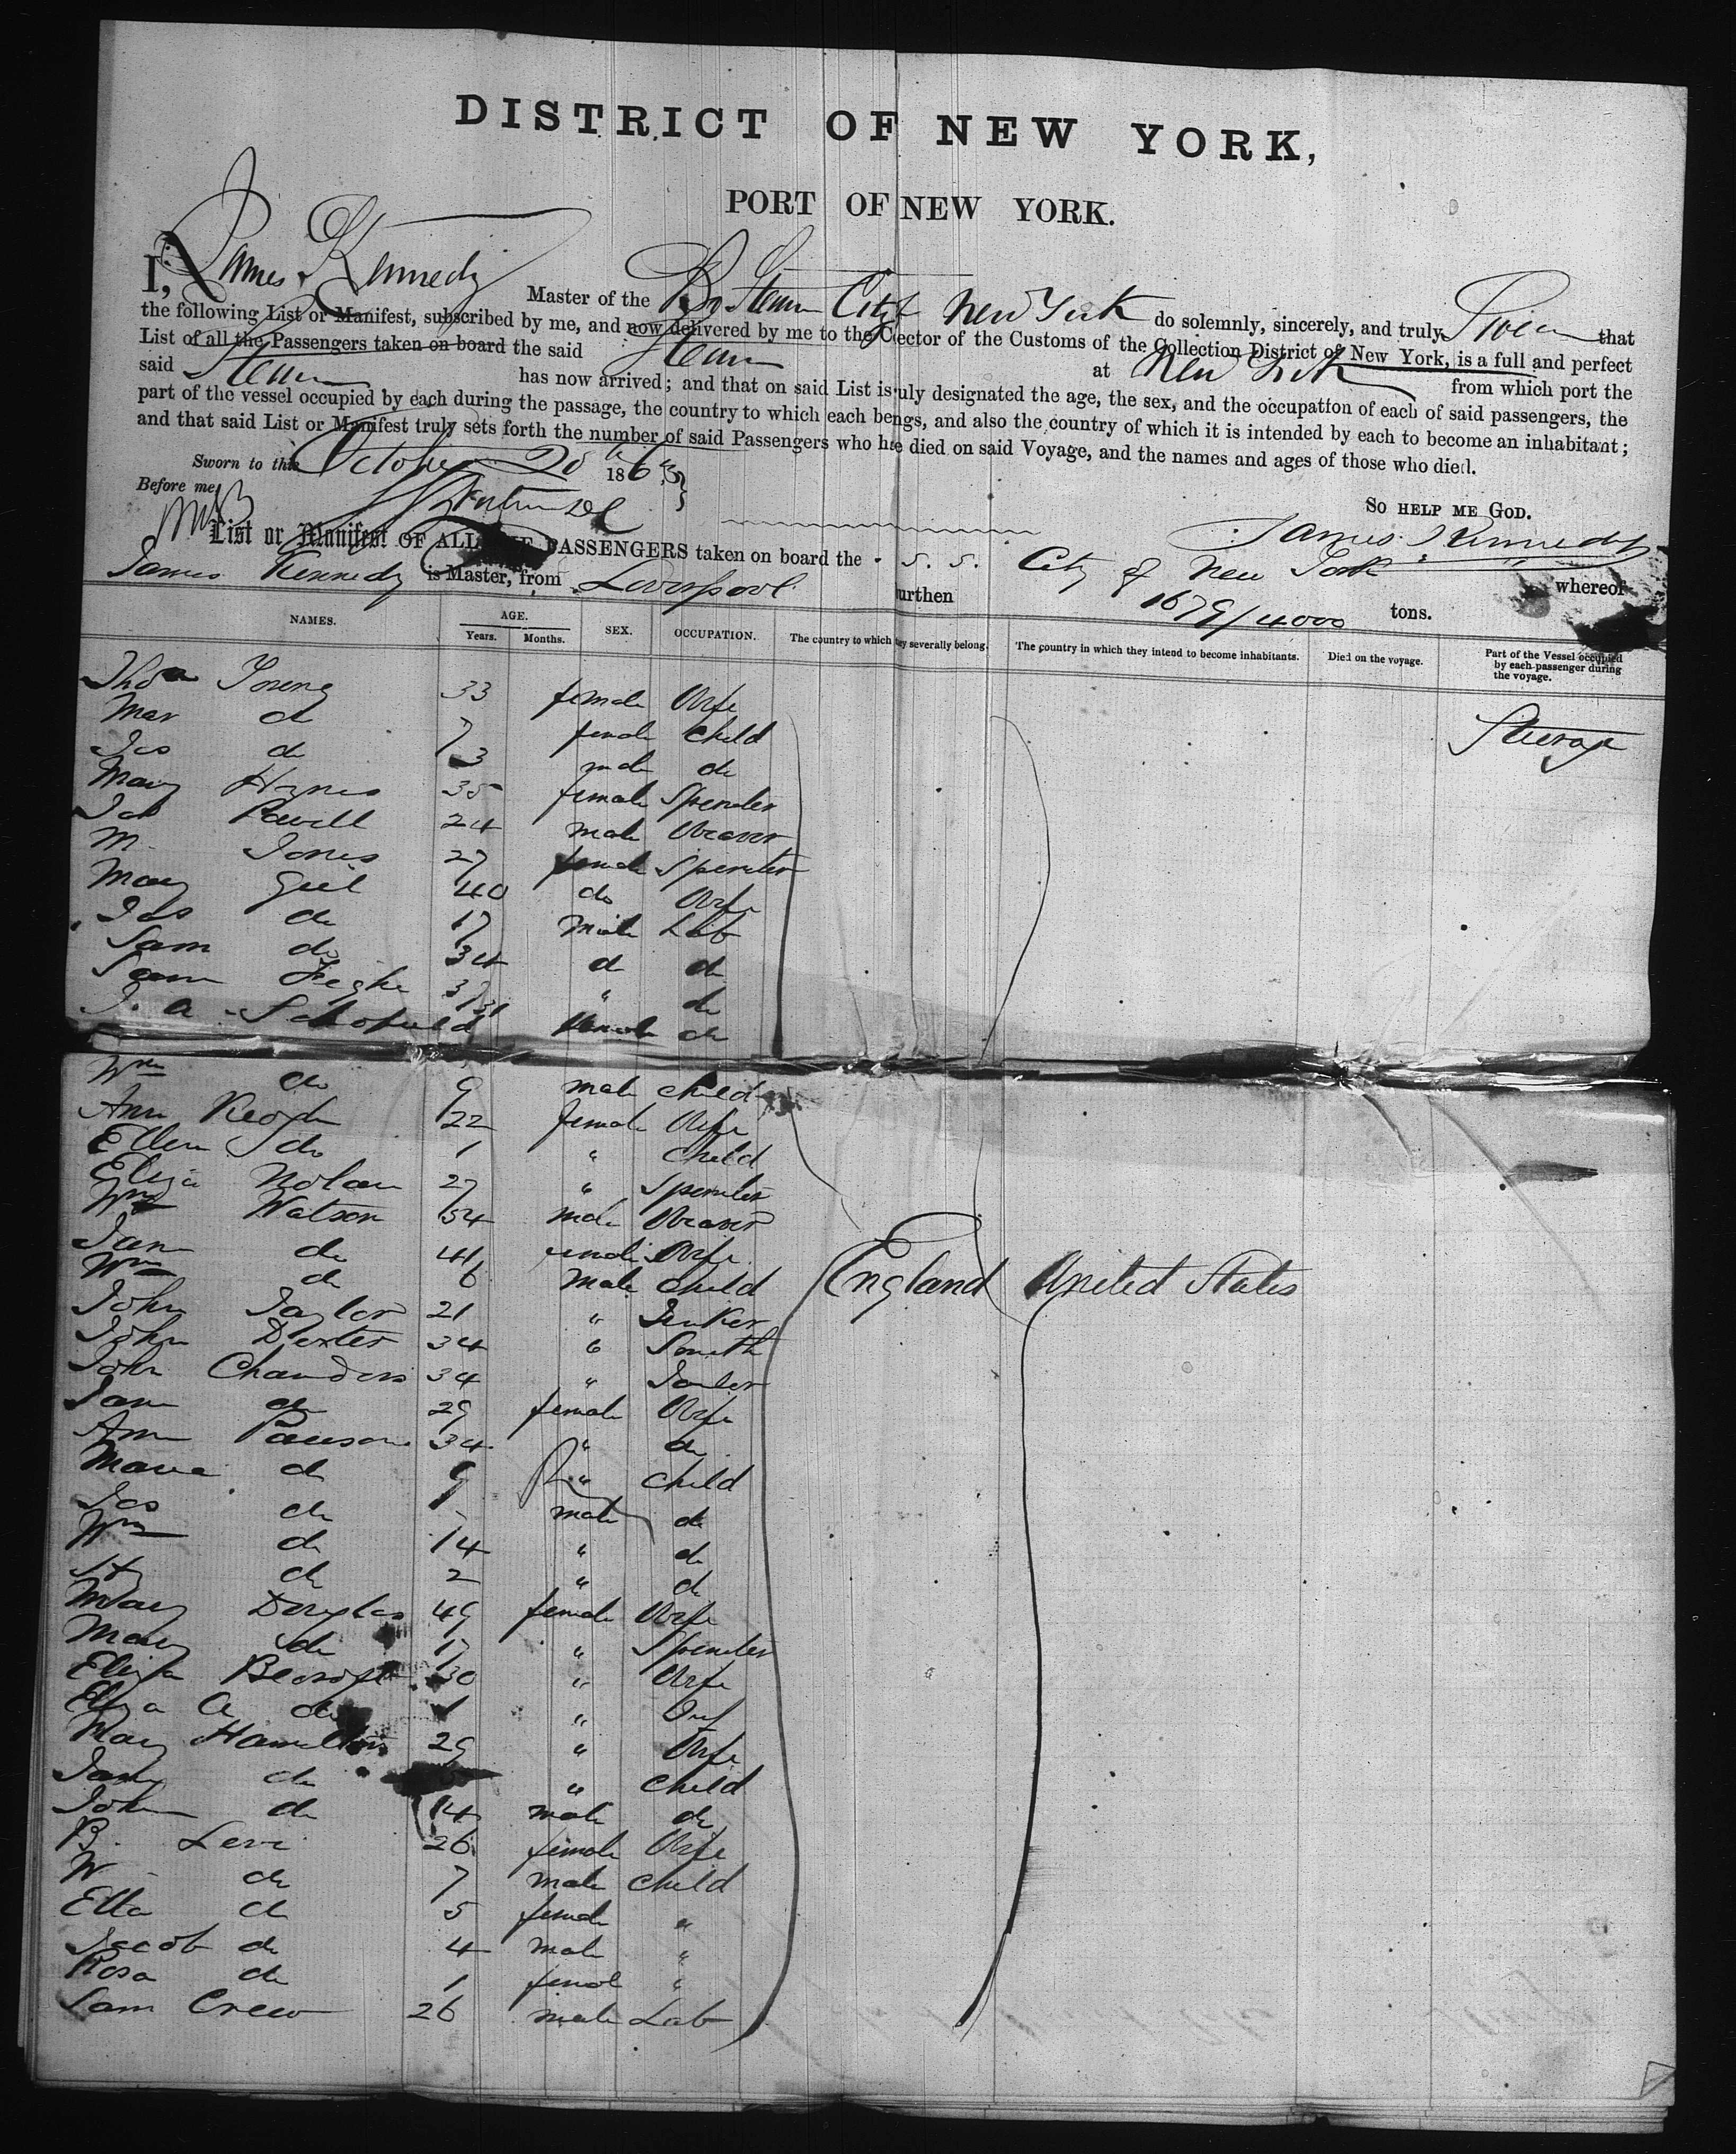 DISTRICT OF NEW YORK,
PORT OF NEW YORK.
I, James Kennedy Master of the City New York do solemnly, sincerely, and truly that
the following List or Manifest, subscribed by me, and now delivered by me to the C lector of the Customs of the Collection District of New York, is a full and perfect
List of all the Passengers taken on board the said Steam at New York from which port the
said Steam has now arrived; and that on said List is uly designated the age, the sex, and the occupation of each of said passengers, the
part of the vessel occupied by each during the passage, the country to which each be ngs, and also the country of which it is intended by each to become an inhabitant;
and that said List or Manifest truly sets forth the number of said Passengers who h e died on said Voyage, and the names and ages of those who died.
Sworn to this October 20th 1863
So HELP ME GOD.
Before me
James Kennedy
List or Manifest OF ALL THE PASSENGERS taken on board the S. S. City of New York whereof
James Kennedy is Master, from Liverpool urthen 1679/4000 tons.
NAMES. AGE. Years. Months. SEX. OCCUPATION. The country to which ey severally belong. The country in which they intend to become inhabitants. Died on the voyage. Part of the Vessel occupied by each passenger during the voyage.
Young 33 female Wife
Mar do 7 female Child Steerage
Jas do 3 male do
Mary Hynes 35 female Spinster
Powell 24 male Weaver
M. Jones 27 female Spinster
Mary Giel 40 do Wife
Jas do 17 male Lab
Sam do 34 do do
Sam 37 " do
J. A. Schofield 31 female do
Wm do 9 male child
Ann Keogh 22 female Wife
Ellen do 1 " Child
Eliza Nolan 27 " Spinster
Wm Watson 54 male Weaver
Jane do 41 female Wife
Wm do 6 male Child England United States
John Taylor 21 "
John Dexter 34 " Smith
John 34 "
Jane do 29 female Wife
Ann 34 " do
Maria do 9 " child
Jas do male do
Wm do 14 " do
Hy do 2 " do
Mary Douglas 49 female Wife
Mary do 17 " Spinster
Eliza 30 " Wife
Eliza A do 1 " Inf
Mary Hamilton 29 " Wife
Jany do " child
John do 14 male do
B. Levi 26 female Wife
W do 7 male child
Etta do 5 female "
Jacob do 4 male "
Rosa do 1 femal "
Sam Crew 26 male Lab